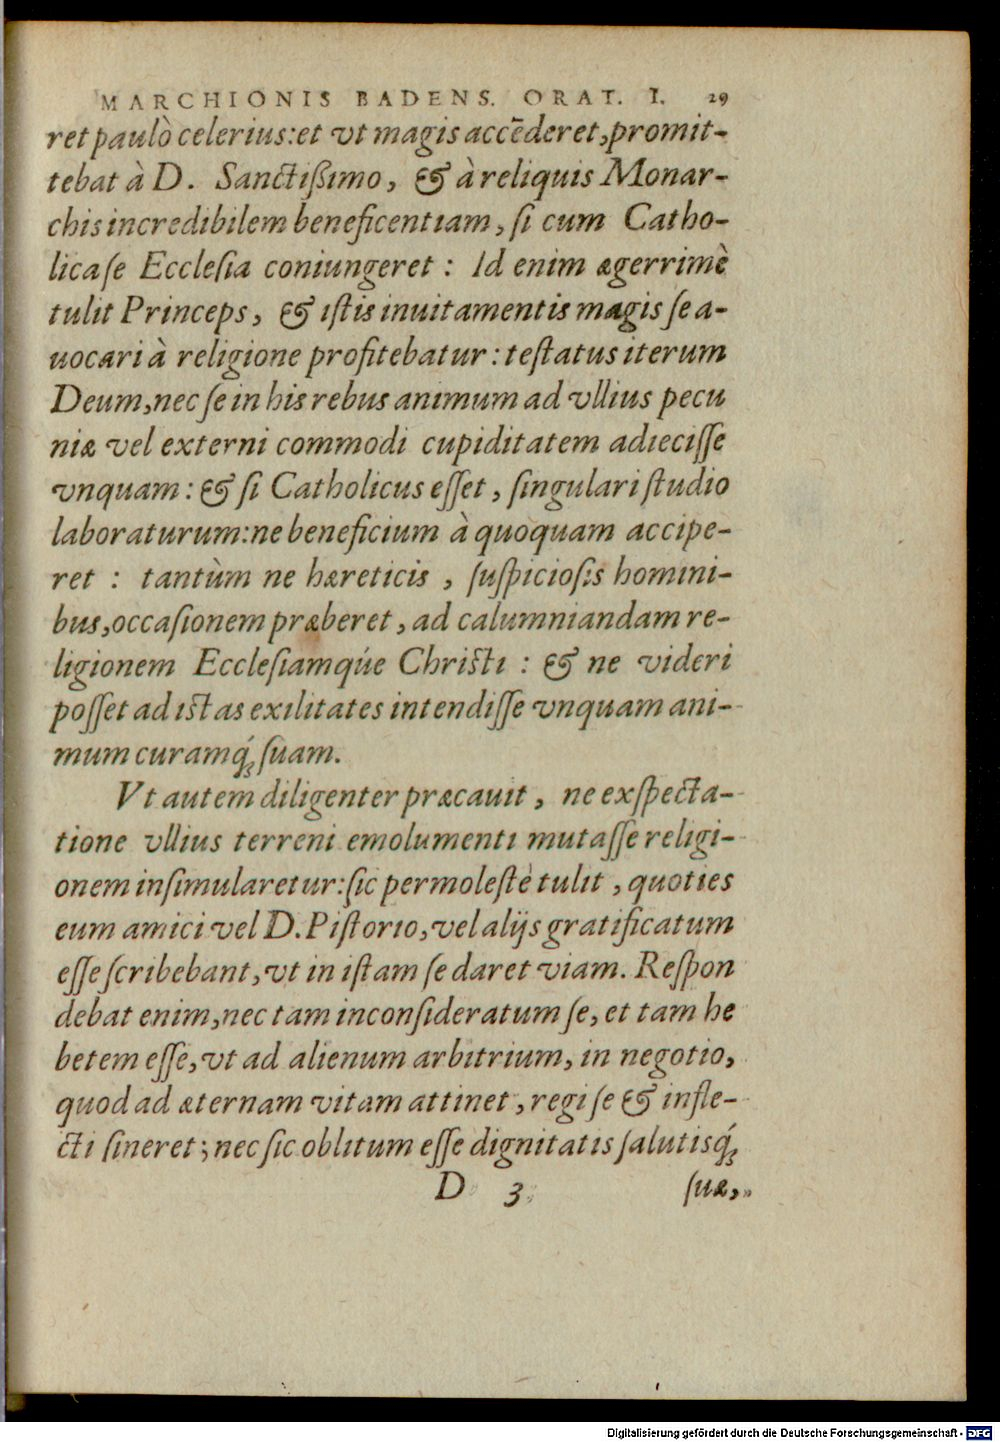 MARCHIONIS BADENS. ORAT. I. 29
ret paulò celerius: et vt magis accēderet, promit-
tebat à D. Sanctißimo, & à reliquis Monar-
chis incredibilem beneficentiam, ſi cum Catho-
lica ſe Eccleſia coniungeret: Id enim ægerrimè
tulit Princeps, & iſtis inuitamentis magis ſe a-
uocari à religione profitebatur: teſtatus iterum
Deum, nec ſe in his rebus animum ad vllius pecu
niæ vel externi commodi cupiditatem adieciſſe
vnquam: & ſi Catholicus eſſet, ſingulari ſtudio
laboraturum: ne beneficium à quoquam accipe-
ret: tantùm ne hæreticis, ſuſpicioſis homini-
bus, occaſionem præberet, ad calumniandam re-
ligionem Eccleſiamqúe Chriſti: & ne videri
poſſet ad iſtas exilitates intendiſſe vnquam ani-
mum curamq́; ſuam.
Vt autem diligenter præcauit, ne exſpecta-
tione vllius terreni emolumenti mutaſſe religi-
onem inſimularetur: ſic permoleſtè tulit, quoties
eum amici vel D. Piſtorio, vel alijs gratificatum
eſſe ſcribebant, vt in iſtam ſe daret viam. Reſpon
debat enim, nec tam inconſideratum ſe, et tam he
betem eſſe, vt ad alienum arbitrium, in negotio,
quod ad æternam vitam attinet, regi ſe & infle-
cti ſineret; nec ſic oblitum eſſe dignitatis ſalutisq́;
D 3 ſuæ,
Digitalisierung gefördert durch die Deutsche Forschungsgemeinschaft - DFG